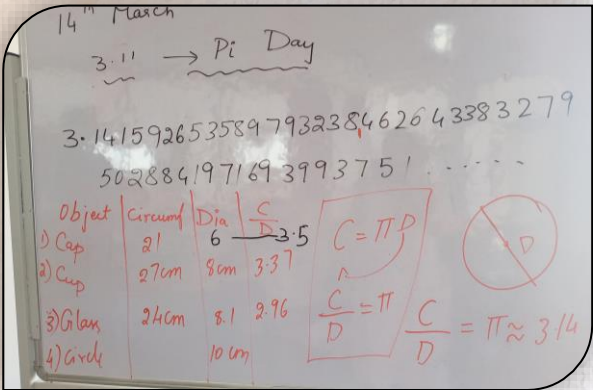 14th March
3.11 → Pi Day
3.14159265358979323846264 3383279
50288419716939937 51......
Object Circumf Dia C/D
1) Cap 21 6 — 3.5
2) Cup 27cm 8cm 3.37
3) Glass 24cm 8.1 2.96
4) Circle 10 cm
C = πD
C/D = π
D
C/D = π ≈ 3.14